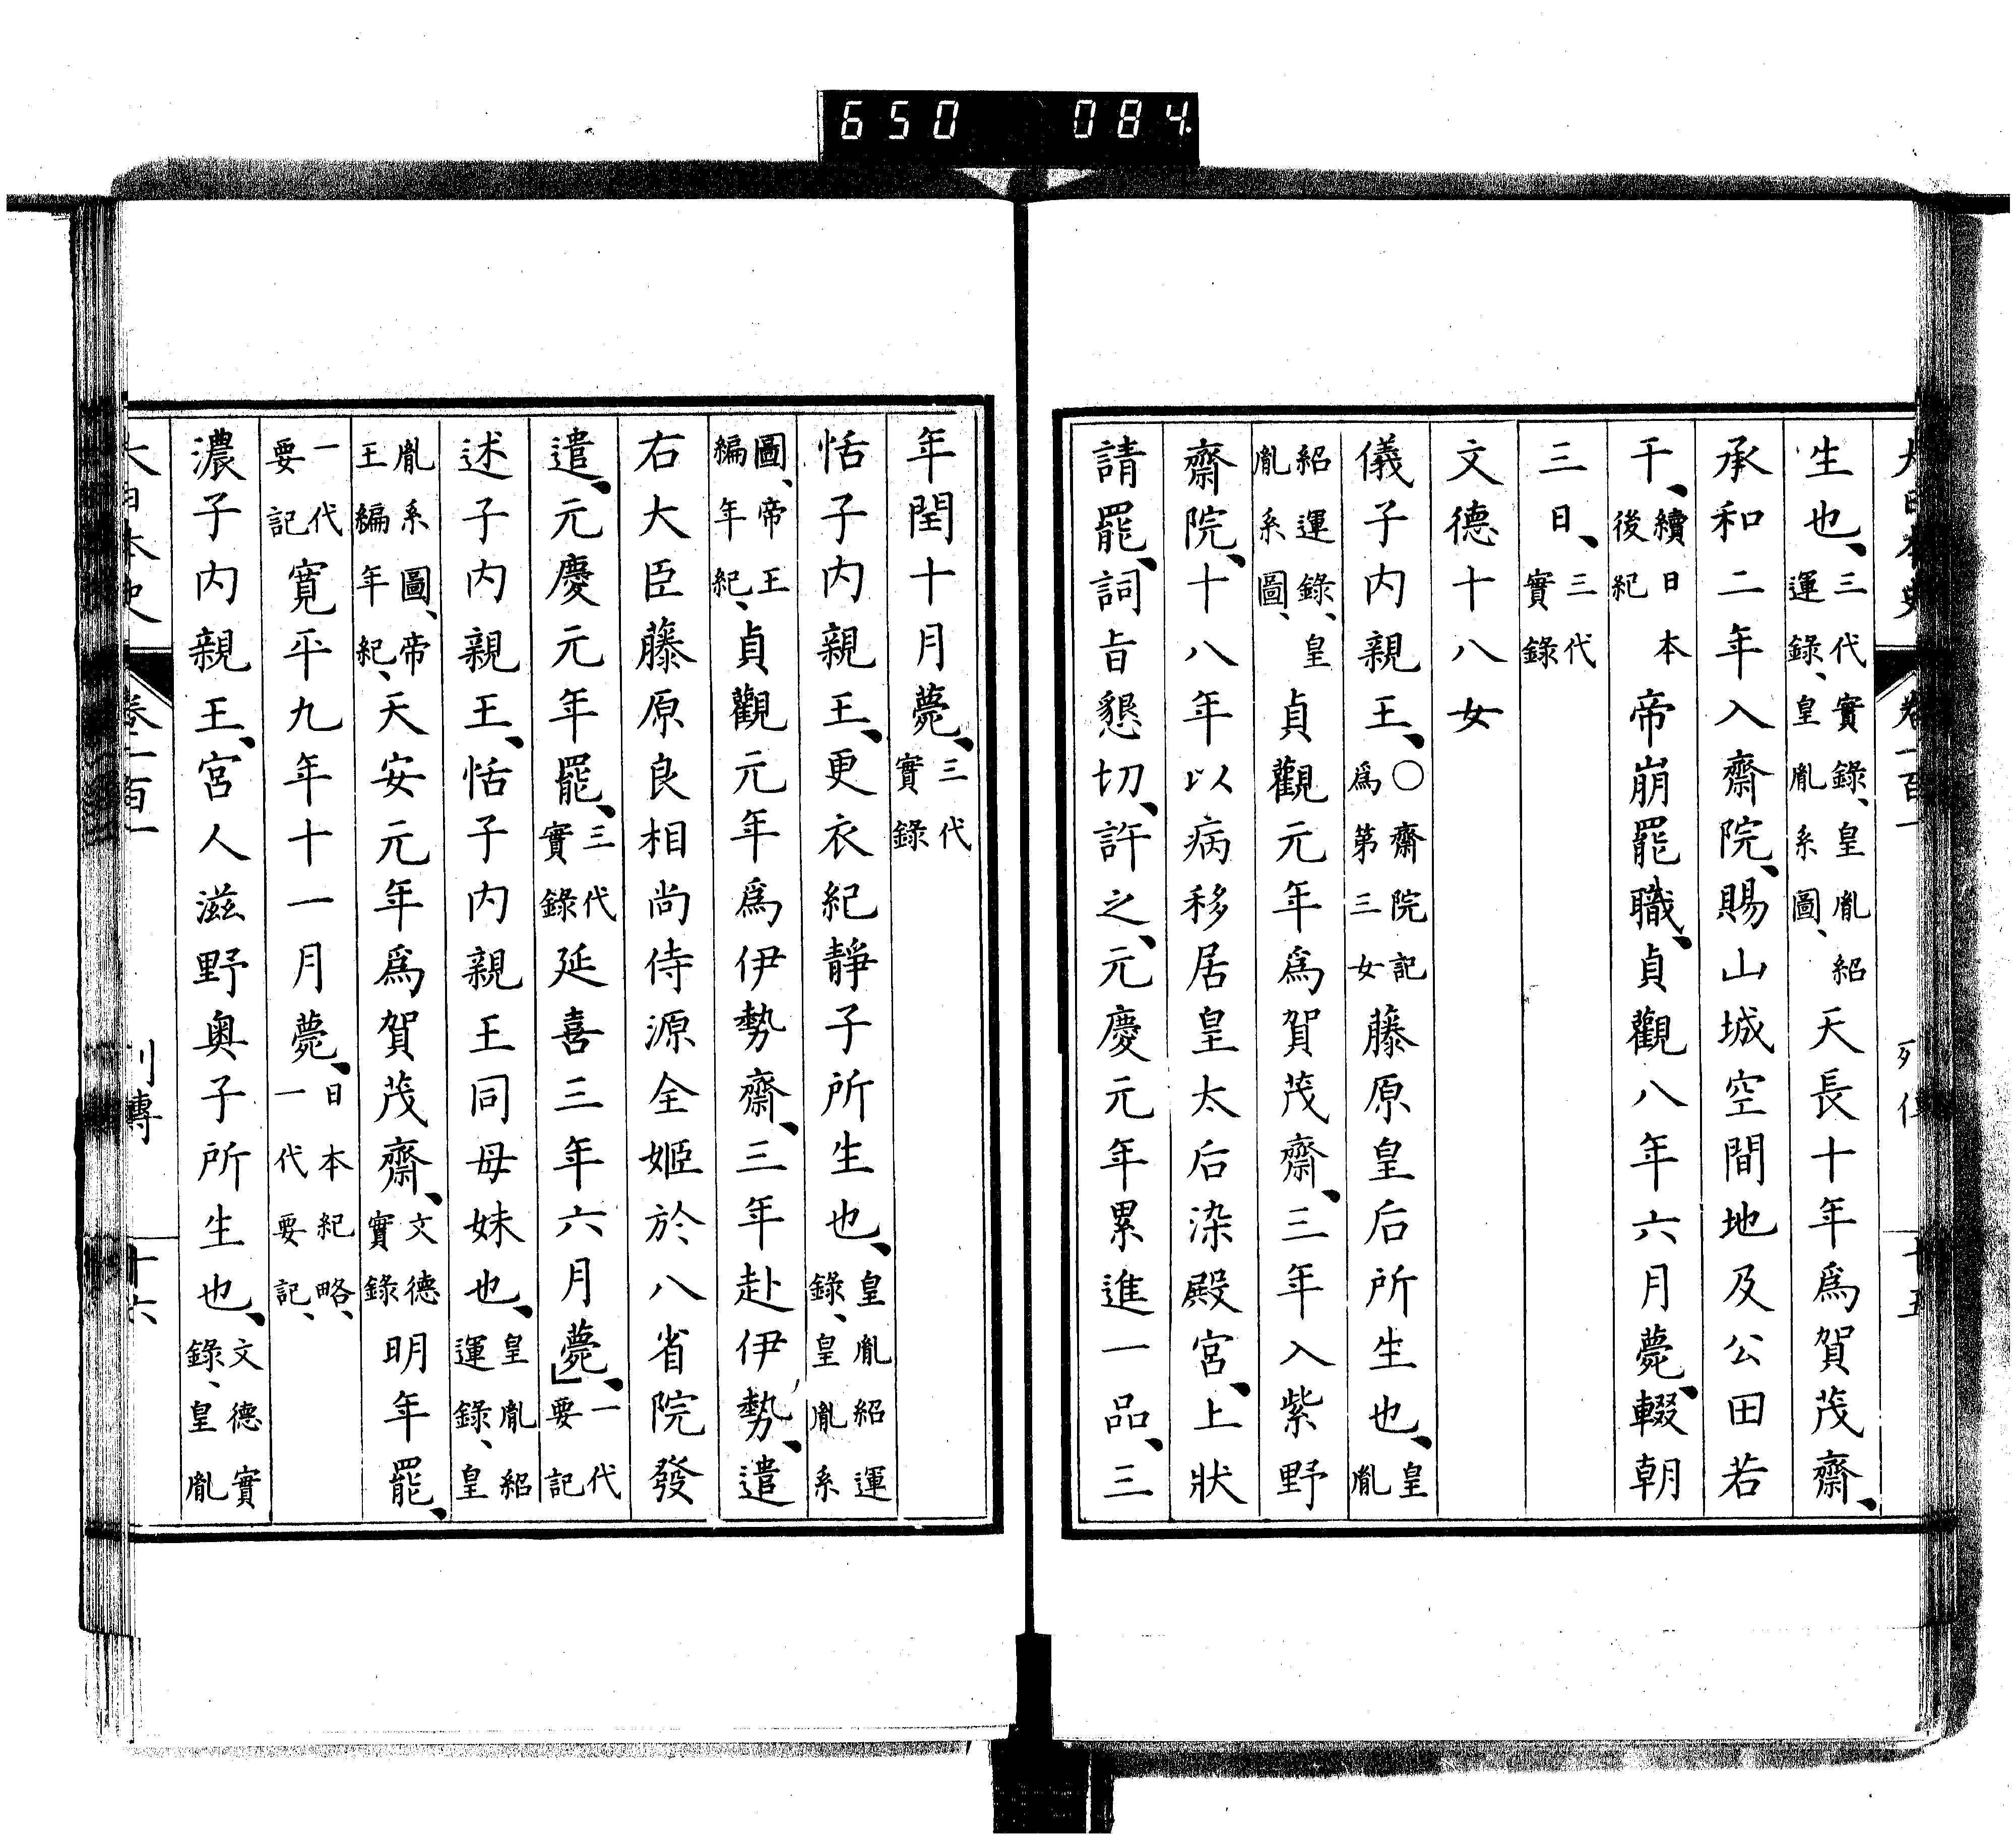 650 084
大日本史 卷一百一 列傳 十五
生也、三代實錄、皇胤紹運錄、皇胤系圖、天長十年爲賀茂齋、
承和二年入齋院、賜山城空閒地及公田若
干、續日本後紀帝崩罷職、貞觀八年六月薨、輟朝
三日、三代實錄
文德十八女
儀子內親王、○齋院記爲第三女藤原皇后所生也、皇胤
紹運錄、皇胤系圖、貞觀元年爲賀茂齋、三年入紫野
齋院、十八年以病移居皇太后染殿宮、上狀
請罷、詞旨懇切、許之、元慶元年累進一品、三
年閏十月薨、三代實錄
恬子內親王、更衣紀靜子所生也、皇胤紹運錄、皇胤系
圖、帝王編年紀、貞觀元年爲伊勢齋、三年赴伊勢、遣
右大臣藤原良相尚侍源全姬於八省院發
遣、元慶元年罷、三代實錄延喜三年六月薨、一代要記
述子內親王、恬子內親王同母妹也、皇胤紹運錄、皇
胤系圖、帝王編年紀、天安元年爲賀茂齋、文德實錄明年罷、
一代要記寬平九年十一月薨、日本紀略、一代要記、
濃子內親王、宮人滋野奧子所生也、文德實錄、皇胤
大日本史 卷一百一 列傳 十六